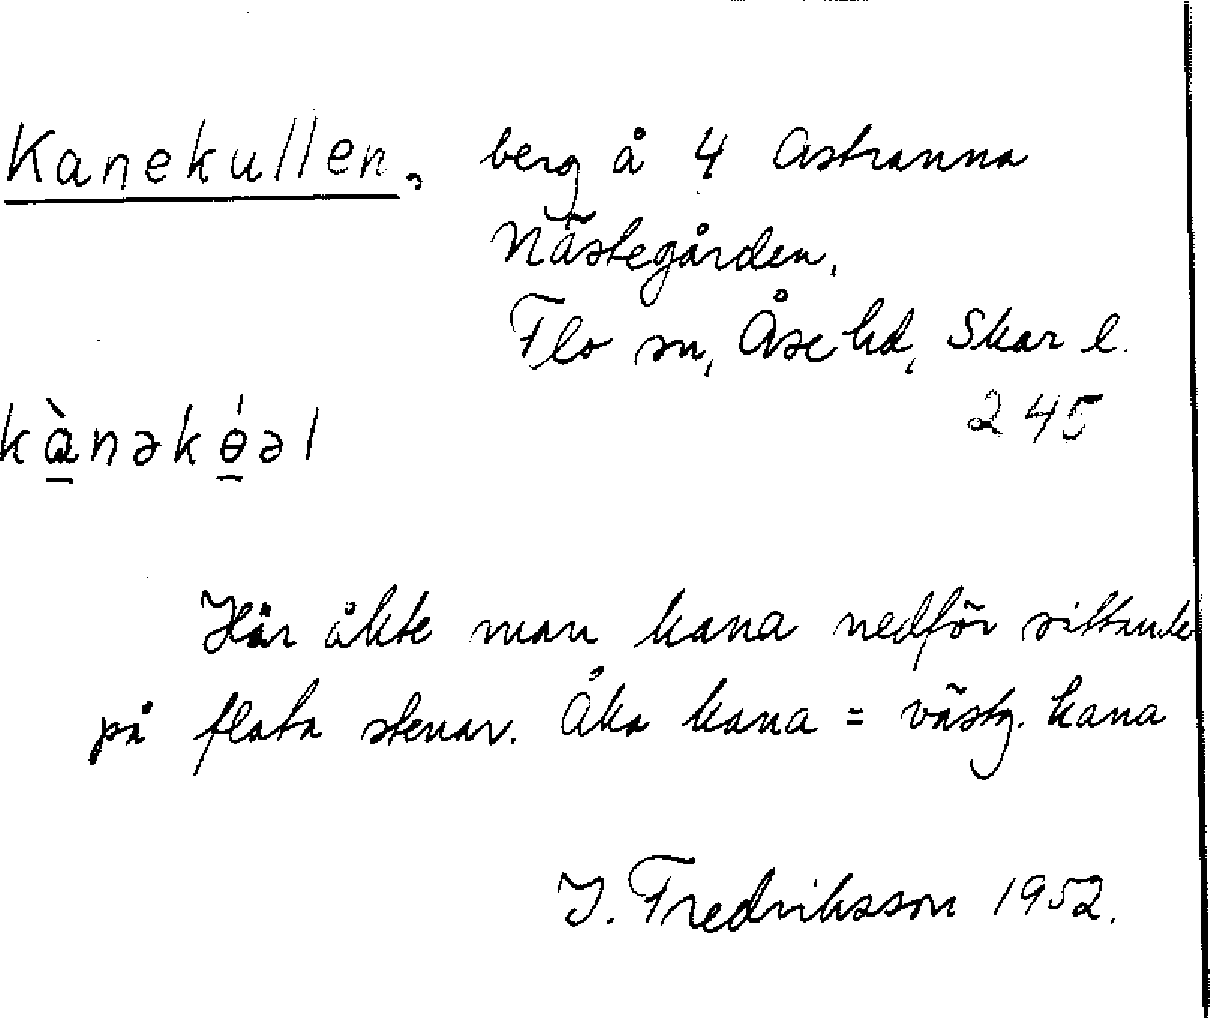 Kanekullen, berg å 4 Astranna
Nästegården,
Flo sn, Åse hd, Skar l.
245
kànəkɵ́əl
Här åkte man kana nedför sittande
på flata stenar. Åka kana = västg. kana
J. Fredriksson 1952.